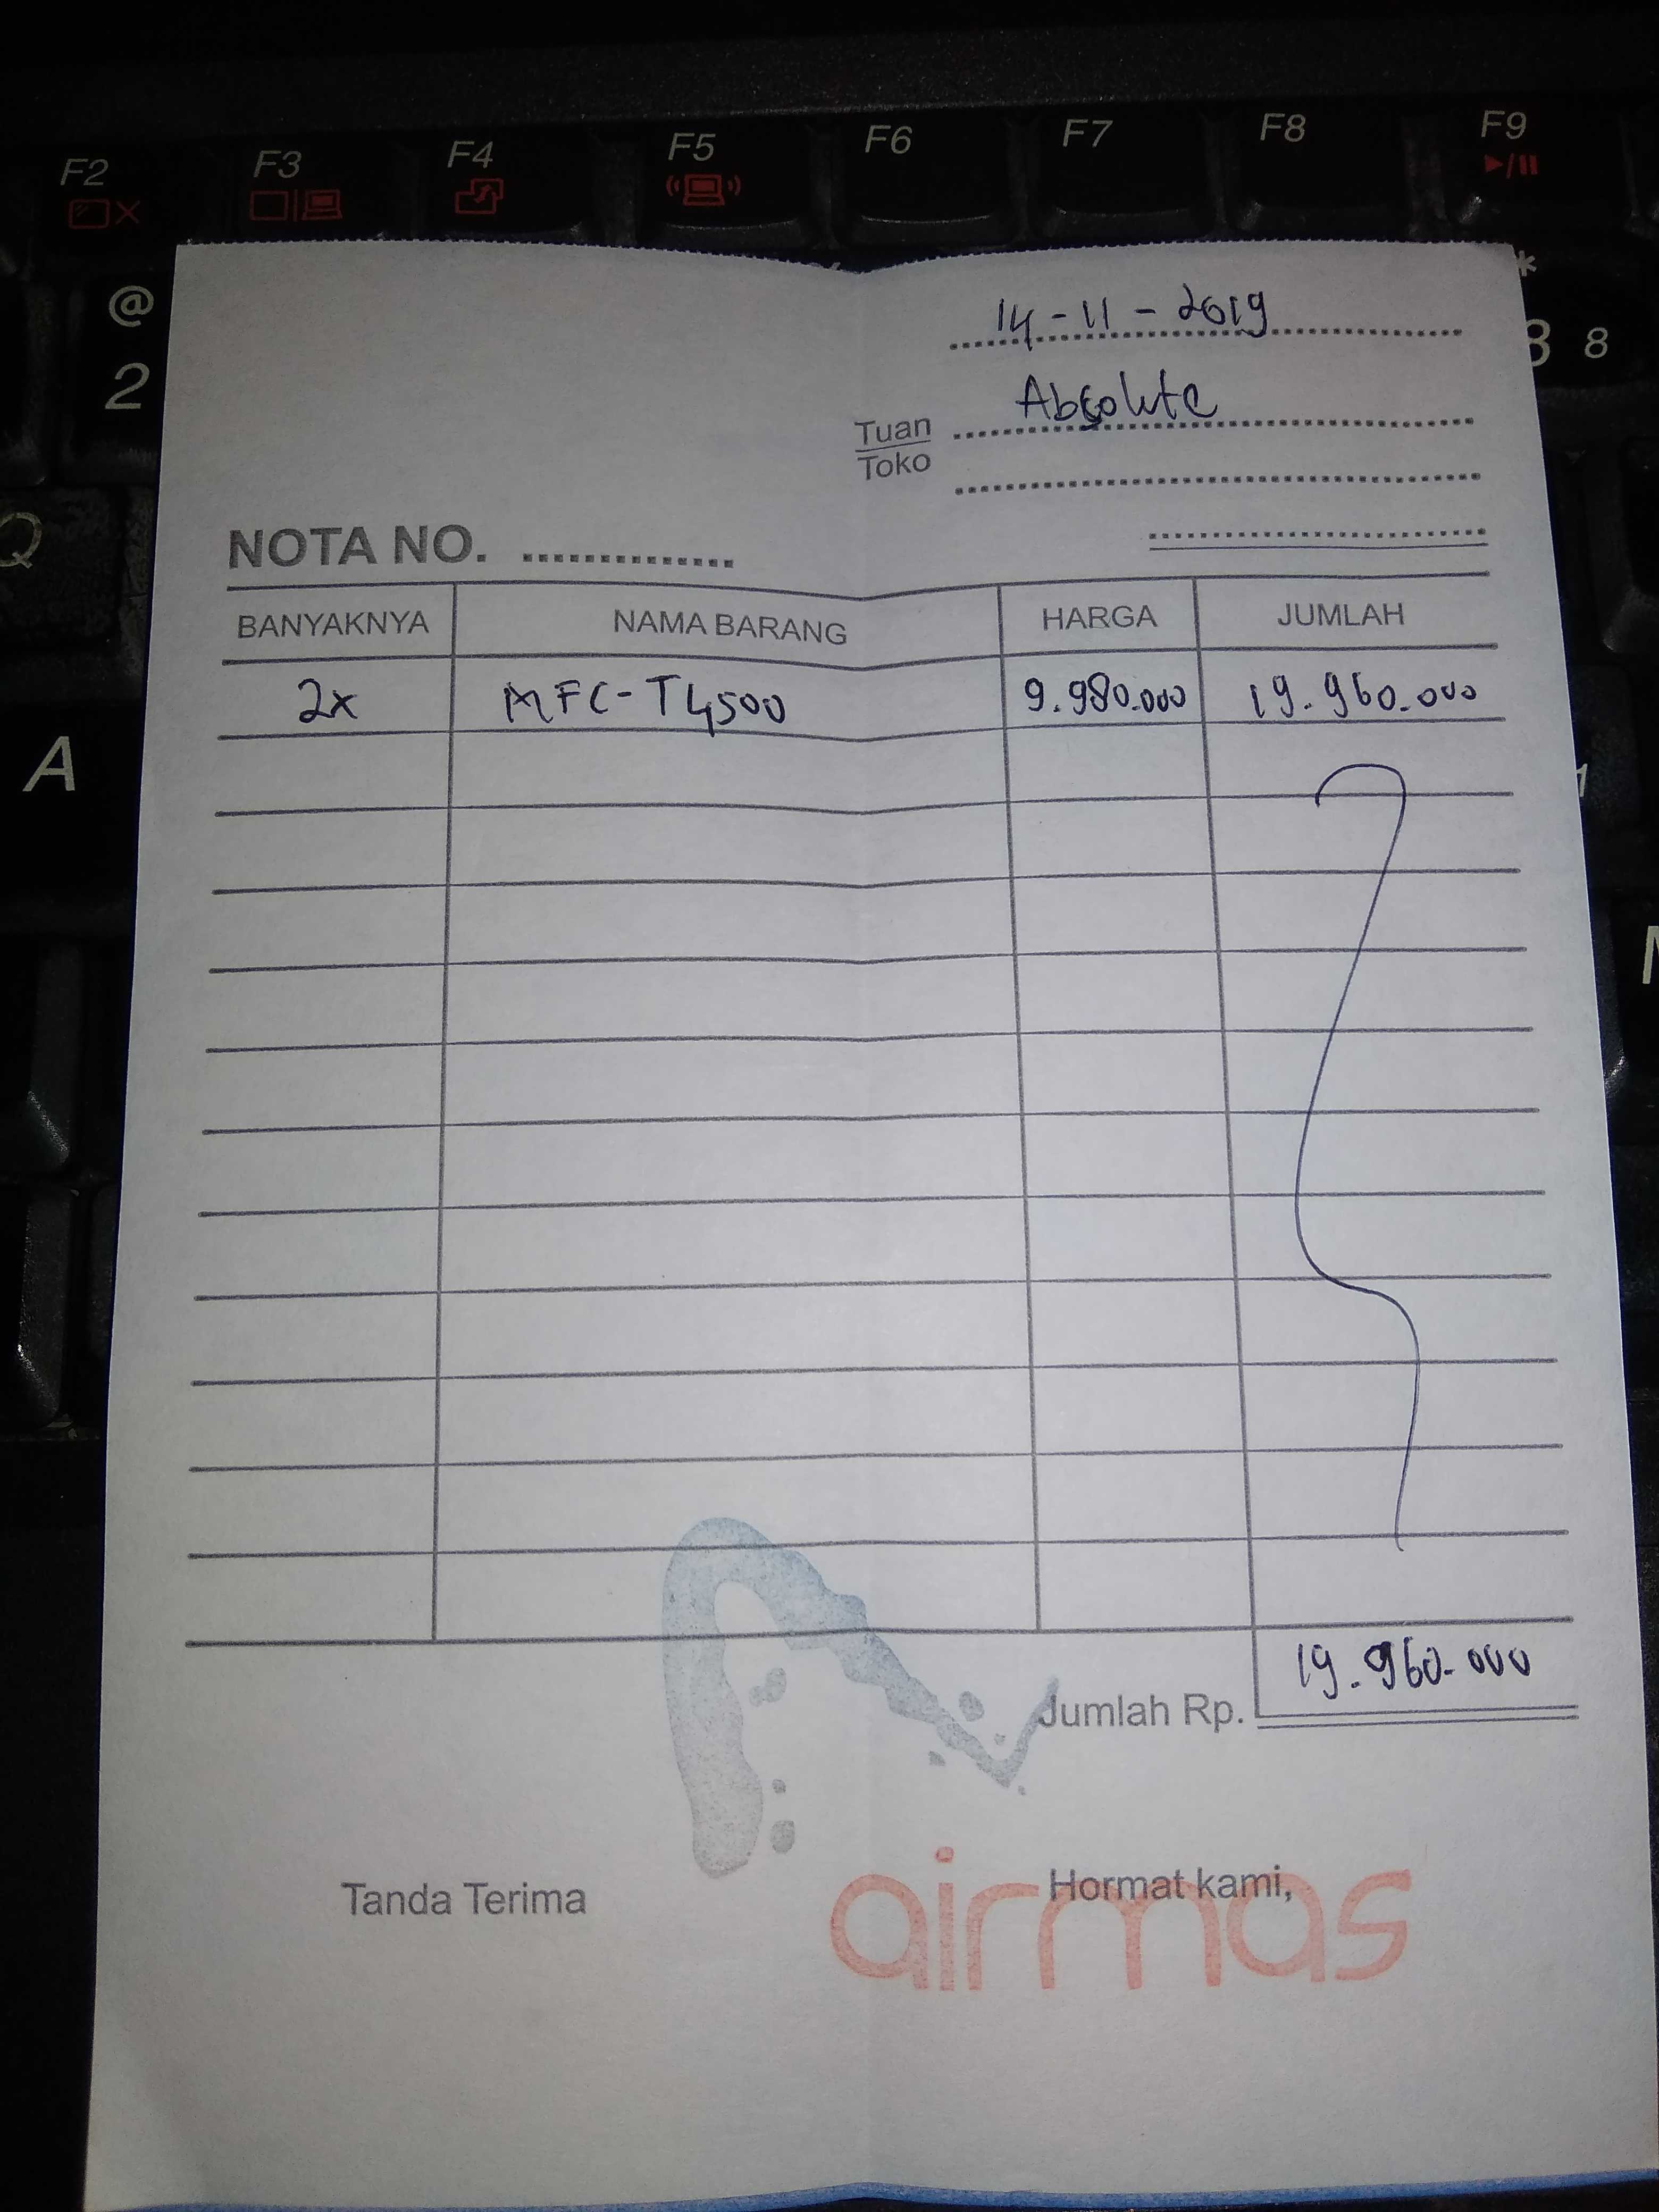 F2 F3 F4 F5 F6 F7 F8 F9
@
2
*
8 8
Q
A
14-11-2019
Tuan Absolute
Toko
NOTA NO. ..............
BANYAKNYA NAMA BARANG HARGA JUMLAH
2x MFC-T4500 9.980.000 19.960.000
Jumlah Rp. 19.960.000
Tanda Terima Hormat kami,
airmas